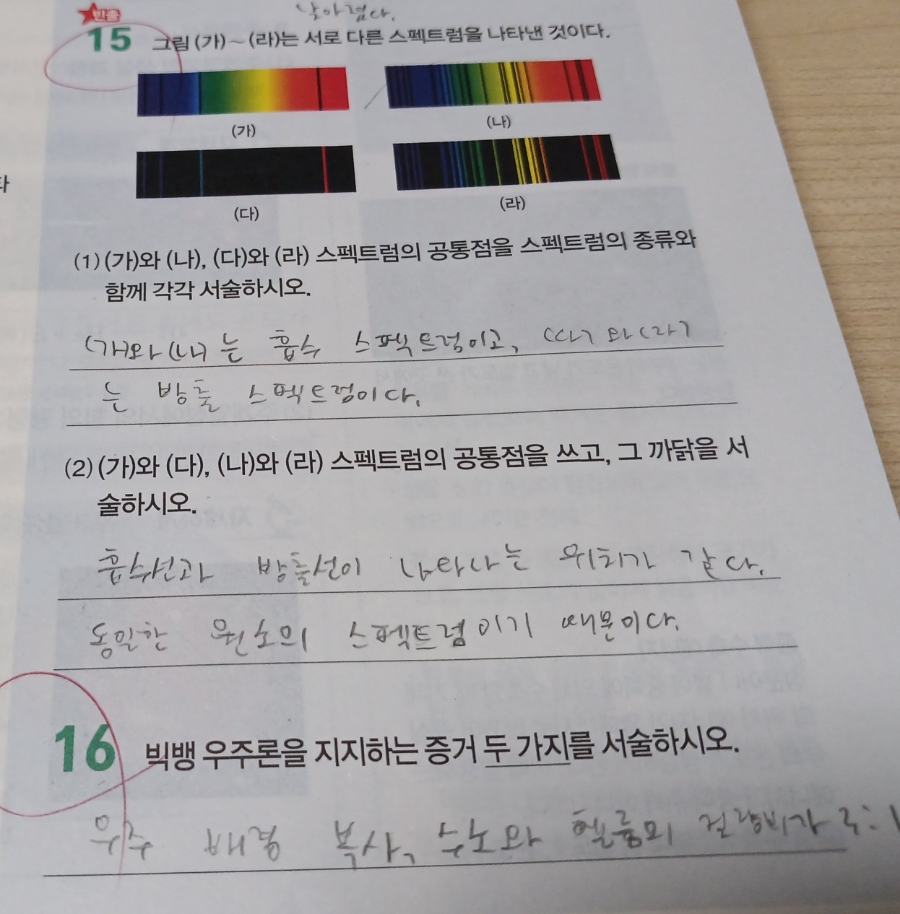 낮아졌다.
반출
15 그림 (가)~(라)는 서로 다른 스펙트럼을 나타낸 것이다.
(가) (나)
(다) (라)
(1) (가)와 (나), (다)와 (라) 스펙트럼의 공통점을 스펙트럼의 종류와
함께 각각 서술하시오.
(가)와 (나)는 흡수 스펙트럼이고, (다)와 (라)
는 방출 스펙트럼이다.
(2) (가)와 (다), (나)와 (라) 스펙트럼의 공통점을 쓰고, 그 까닭을 서
술하시오.
흡수선과 방출선이 나타나는 위치가 같다.
동일한 원소의 스펙트럼이기 때문이다.
16 빅뱅 우주론을 지지하는 증거 두 가지를 서술하시오.
우주 배경 복사, 수소와 헬륨의 질량비가 3:1